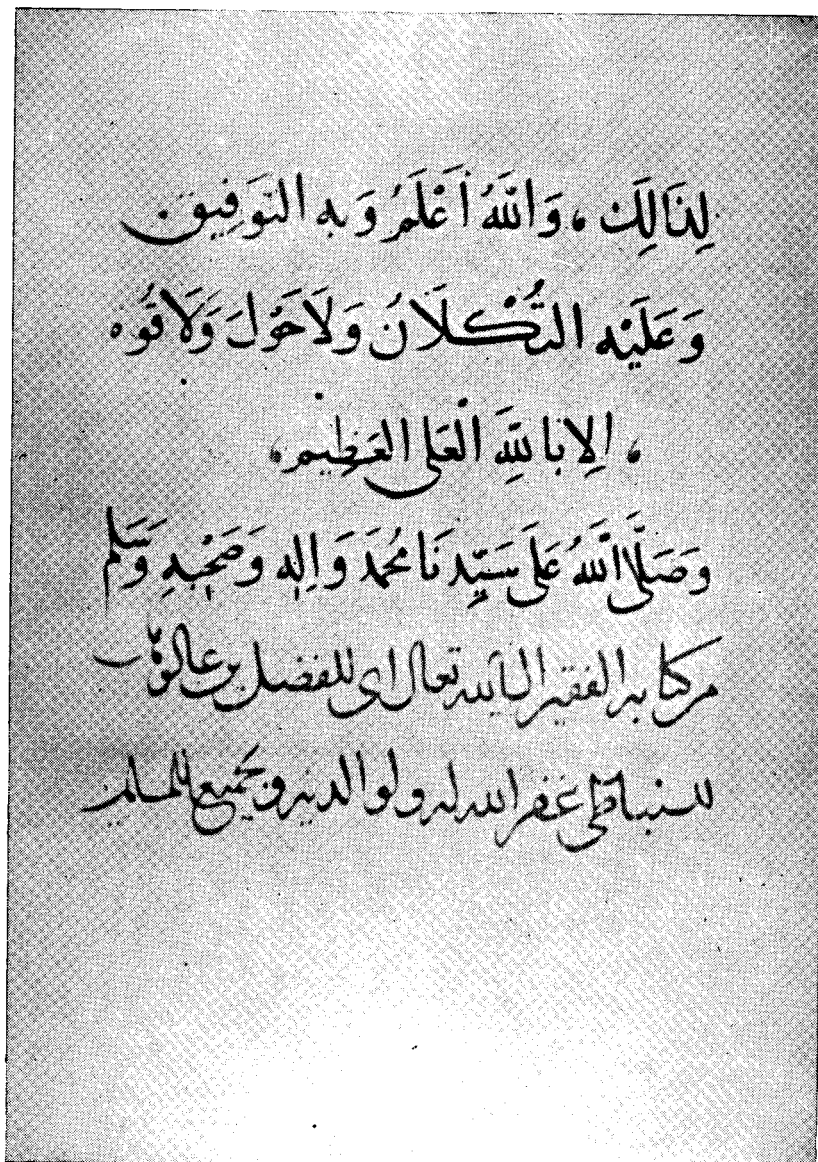 لِذَالِكَ ، وَاللَّهُ أَعْلَمُ وَبِهِ التَّوْفِيقُ
وَعَلَيْهِ التُّكْلَانُ وَلَا حَوْلَ وَلَا قُوَّه
، اِلا بِاللَّهِ الْعَلي العَظِيم ،
وَصَلَّى اللَّهُ عَلَى سَيِّدِنَا مُحَمَّد وَاٰلِهِ وَصَحْبِهِ وَسَلَّم
من كتابه الفقير الى الله تعالى ابى الفضل بن
السنباطى غفر الله له ولوالديه ولجميع المسلمين